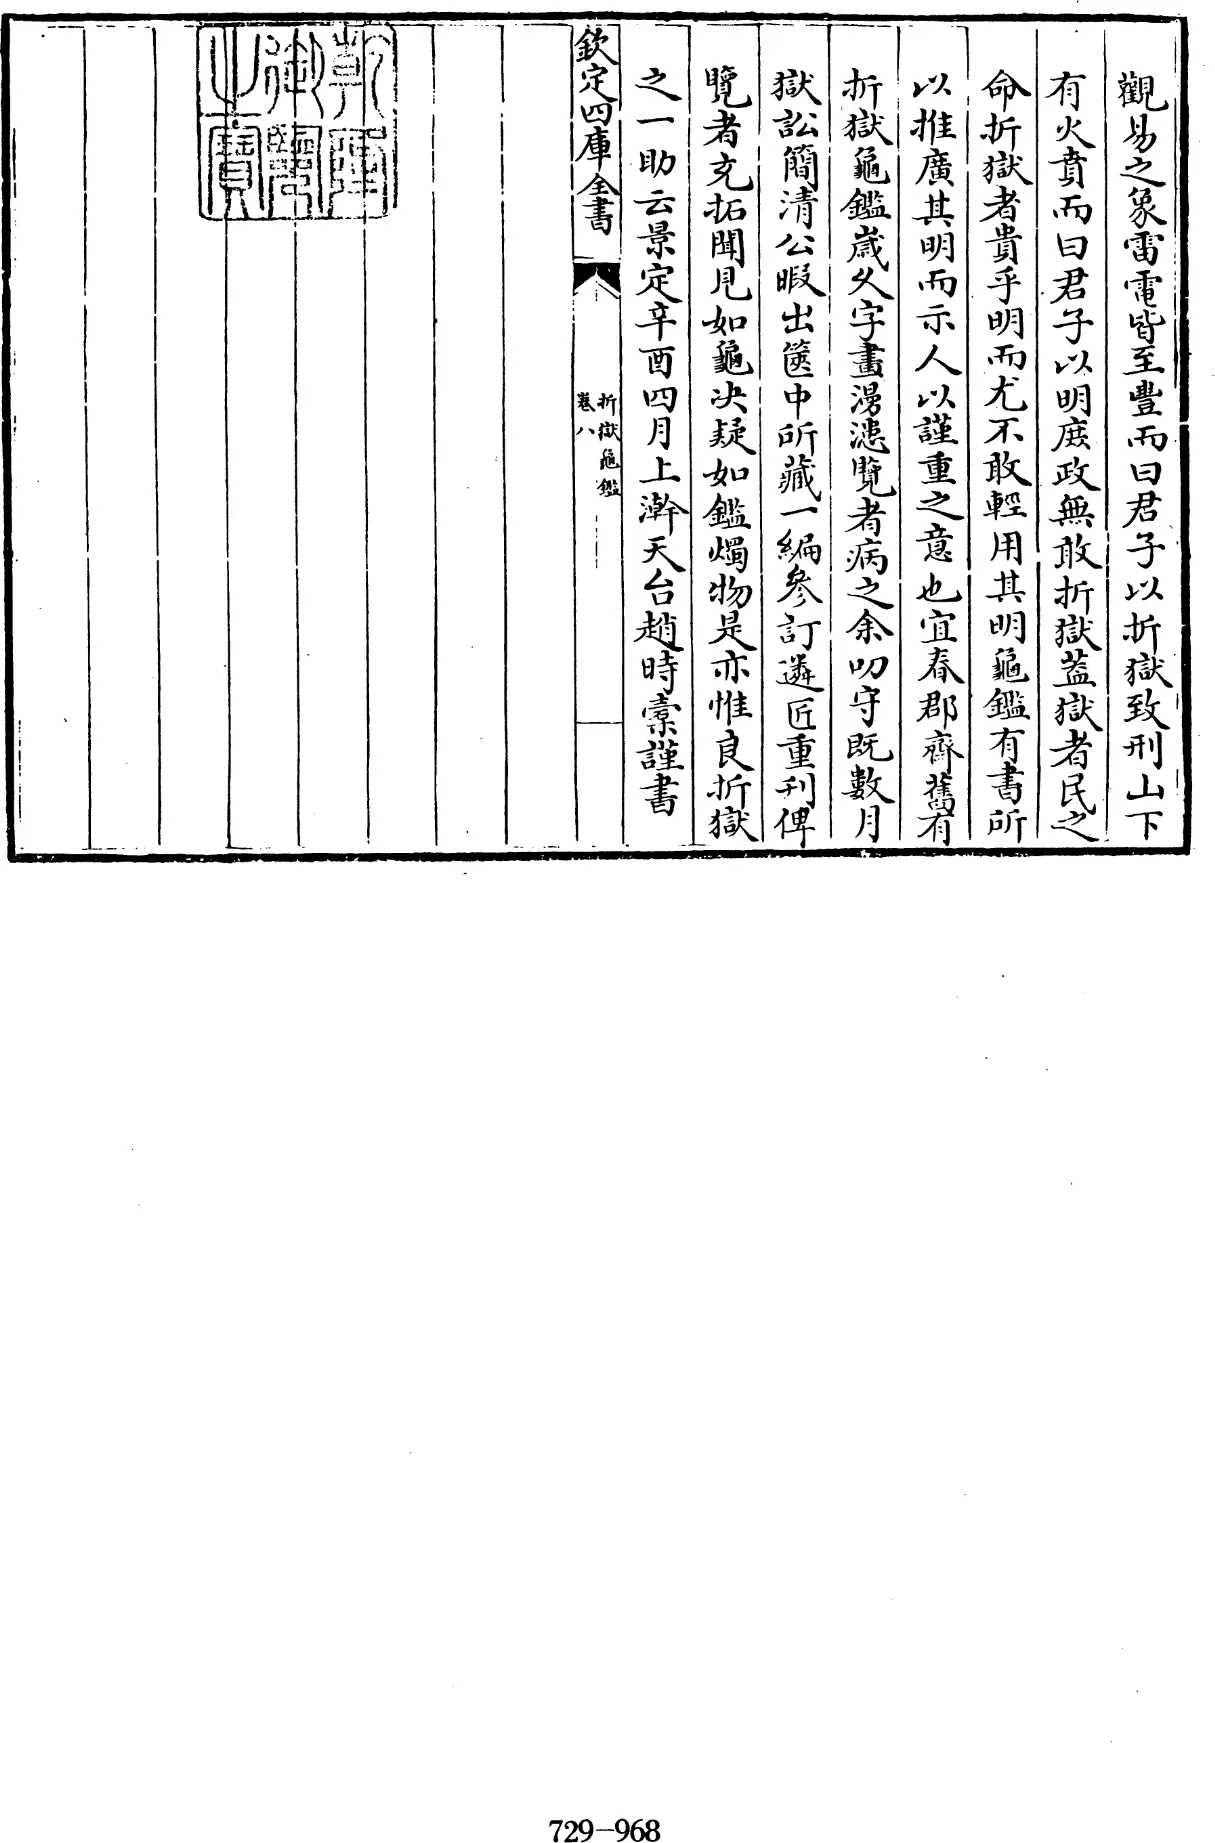 觀易之象雷電皆至豐而曰君子以折獄致刑山下
有火賁而曰君子以明庶政無敢折獄葢獄者民之
命折獄者貴乎明而尤不敢輕用其明龜鑑有書所
以推廣其明而示人以謹重之意也宜春郡齋舊有
折獄龜鑑歲乆字畫漫漶覽者病之余叨守既數月
獄訟簡清公暇出篋中所藏一編參訂遴匠重刊俾
覽者充拓聞見如龜决疑如鑑燭物是亦惟良折獄
之一助云景定辛酉四月上澣天台趙時橐謹書
欽定四庫全書
折獄龜鑑
卷八
乾隆
御覽
之寶
729-968